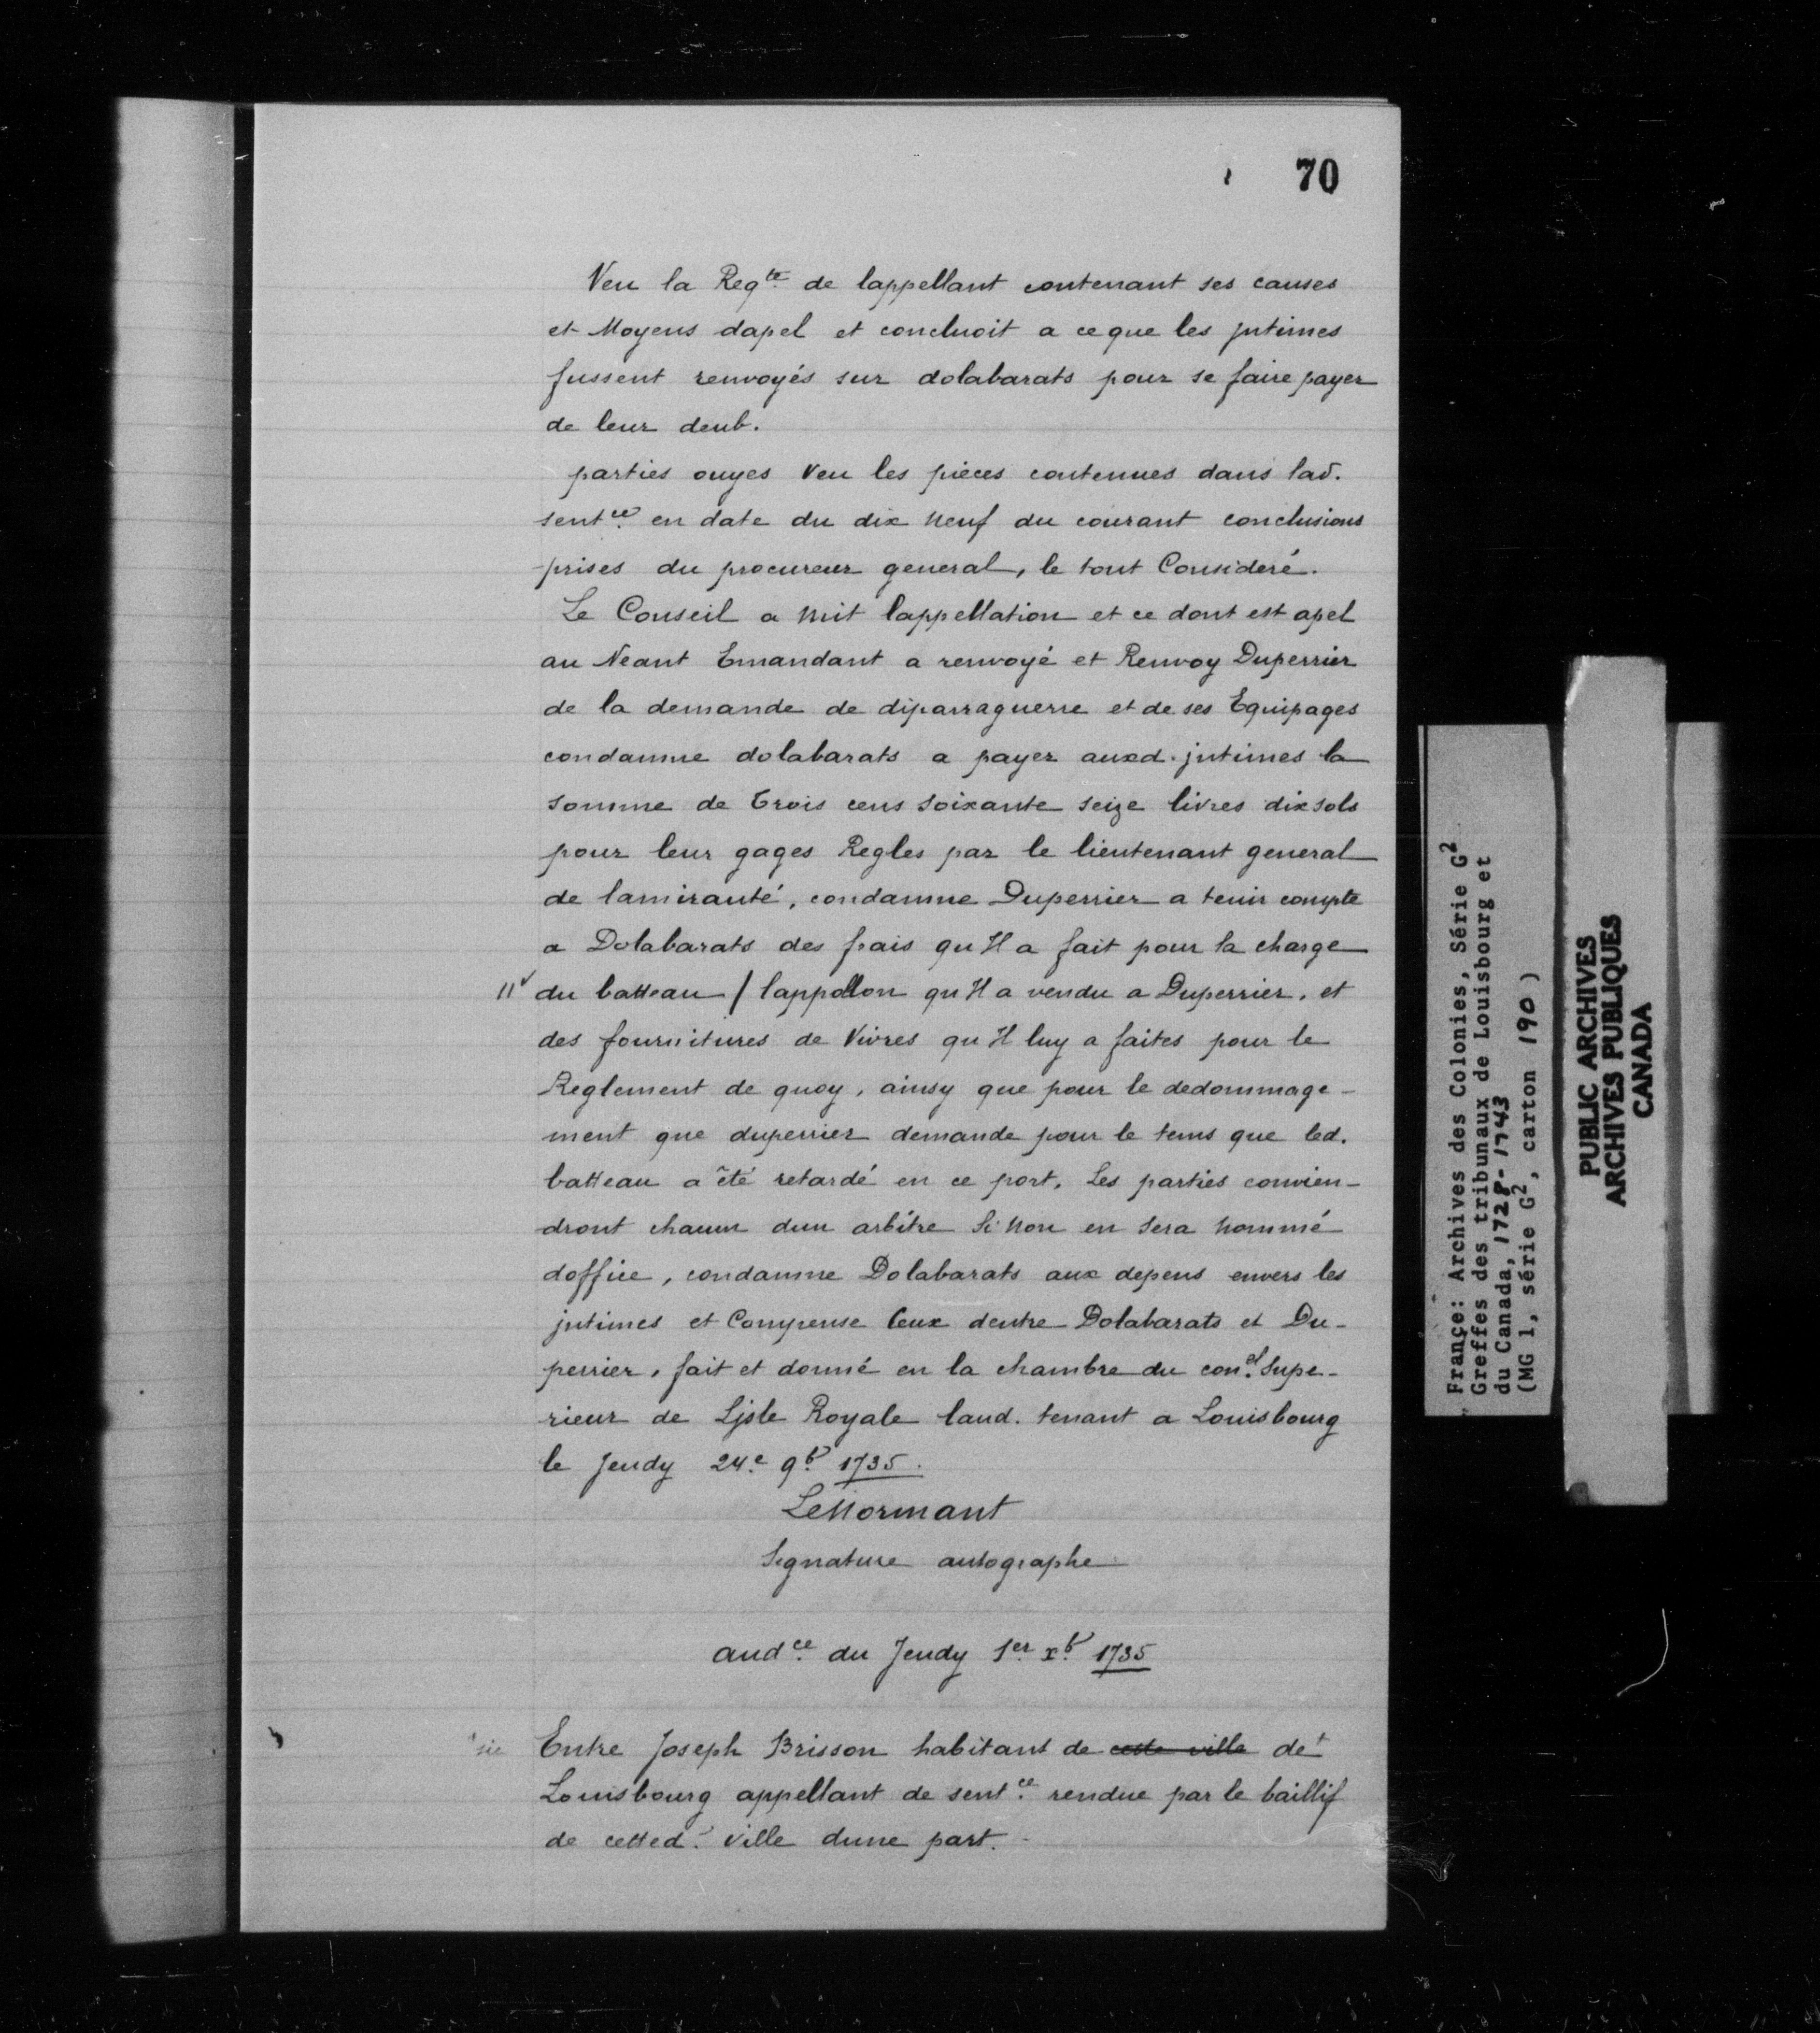 70
Veu la Reqte de lappellant contenant ses causes
et Moyens dapel et concluoit a ce que les jntimes
fussent renvoyés sur dolabarats pour se faire payer
de leur deub.
parties ouyes Veu les pieces contenues dans lad.
sentce en date du dix neuf du courant conclusions
prises du procureur general, le tout Consideré.
Le Conseil a mit lappellation et ce dont est apel
au Neant Emandant a renvoyé et Renvoy Duperrier
de la demande de diparraguerre et de ses Equipages
condamne dolabarats a payer auxd. jntimes la
somme de trois cens soixante seize livres dix sols
pour leur gages Regles par le lieutenant general
de lamirauté, condamne Duperrier a tenir compte
a Dolabarats des frais qu Il a fait pour la charge
11v du batteau / lappollon qu Il a vendu a Duperrier, et
des fournitures de Vivres qu Il luy a faites pour le
Reglement de quoy, ainsy que pour le dedommage-
ment que duperrier demande pour le tems que led.
batteau a été retardé en ce port, Les parties convien-
dront chacun dun arbitre Si non en sera nommé
doffice, condamne Dolabarats aux depens envers les
jntimes et Compense Ceux dentre Dolabarats et Du-
perrier, fait et donné en la chambre du conel Supe-
rieur de Ljsle Royale laud. tenant a Louisbourg
le Jeudy 24e 9b 1735.
LeNormant
Signature autographe
audce du Jeudy 1er xb 1735
sic Entre Joseph Brisson habitant de cette ville de
Louisbourg appellant de sentce rendue par le baillif
de cetted. Ville dune part.
France: Archives des Colonies, Série G2
Greffes des tribunaux de Louisbourg et
du Canada, 1728-1743
(MG 1, série G2, carton 190)
PUBLIC ARCHIVES
ARCHIVES PUBLIQUES
CANADA